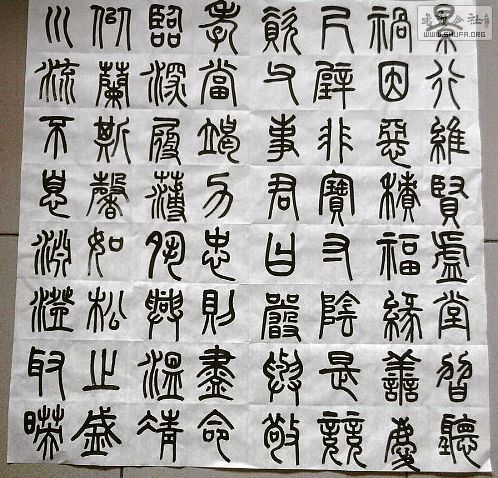 景行維賢虛堂習聽
禍因惡積福緣善慶
尺璧非寶寸陰是競
資父事君曰嚴與敬
孝當竭力忠則盡命
臨深履薄夙興溫凊
似蘭斯馨如松之盛
川流不息淵澄取暎
WWW.SHUFA.ORG